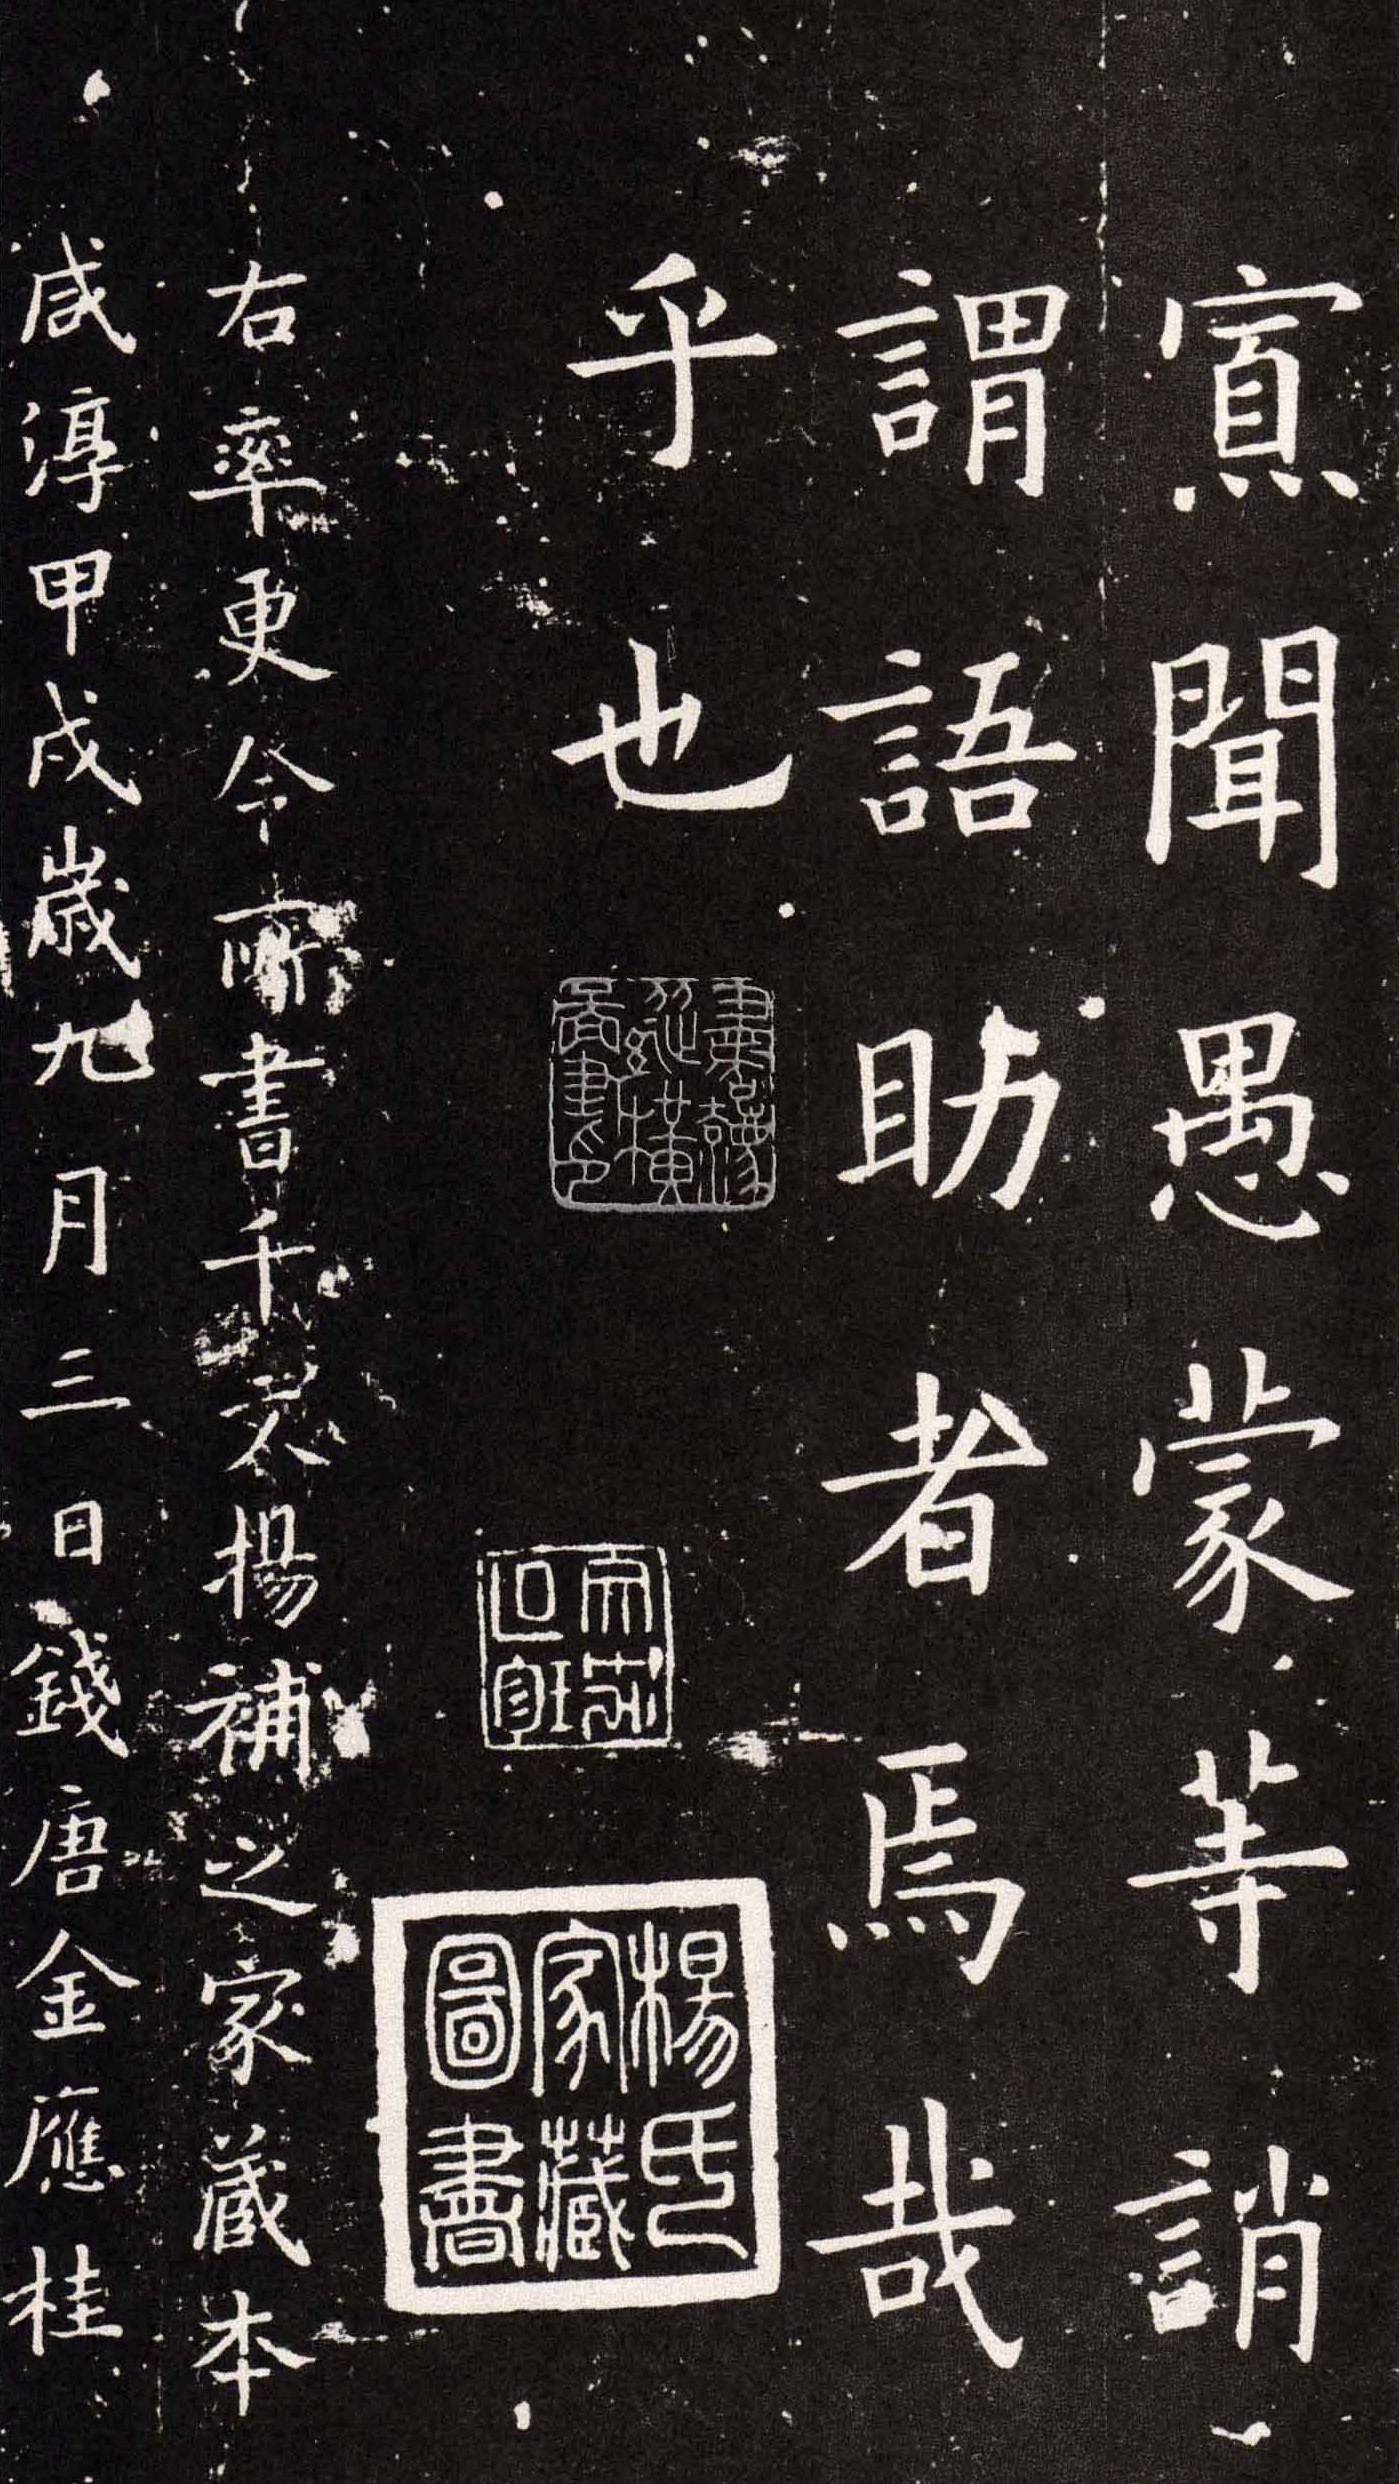 寡聞愚蒙等誚
謂語助者焉哉
乎也
楊氏
家藏
圖書
右率更令所書千文楊補之家藏本
咸淳甲戌歲九月三日錢唐金應桂